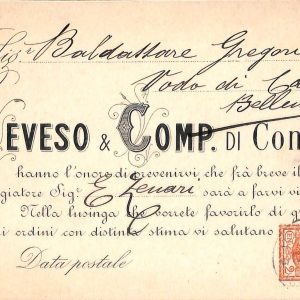 Sigr Baldassare Gregori
Vodo di Ca
Bellun
EVESO & COMP. DI Com
hanno l'onore di prevenirvi, che frà breve il
giatore Sigr. E Lenari sarà a farvi vi
Nella lusinga che vorrete favorirlo di g
i ordini con distinta stima vi salutano
Data postale